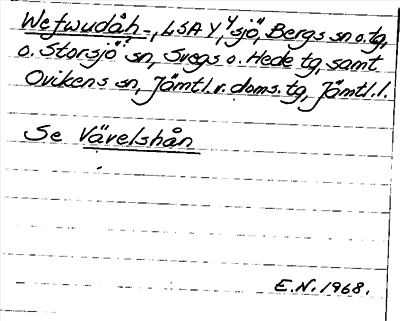 Wefwudåh-, LSA Y, 4 sjö, Bergs sn o. tg,
o. Storsjö sn, Svegs o. Hede tg, samt
Ovikens sn, Jämtl. v. doms. tg, Jämtl. l.
Se Vävelshån
E.N. 1968.